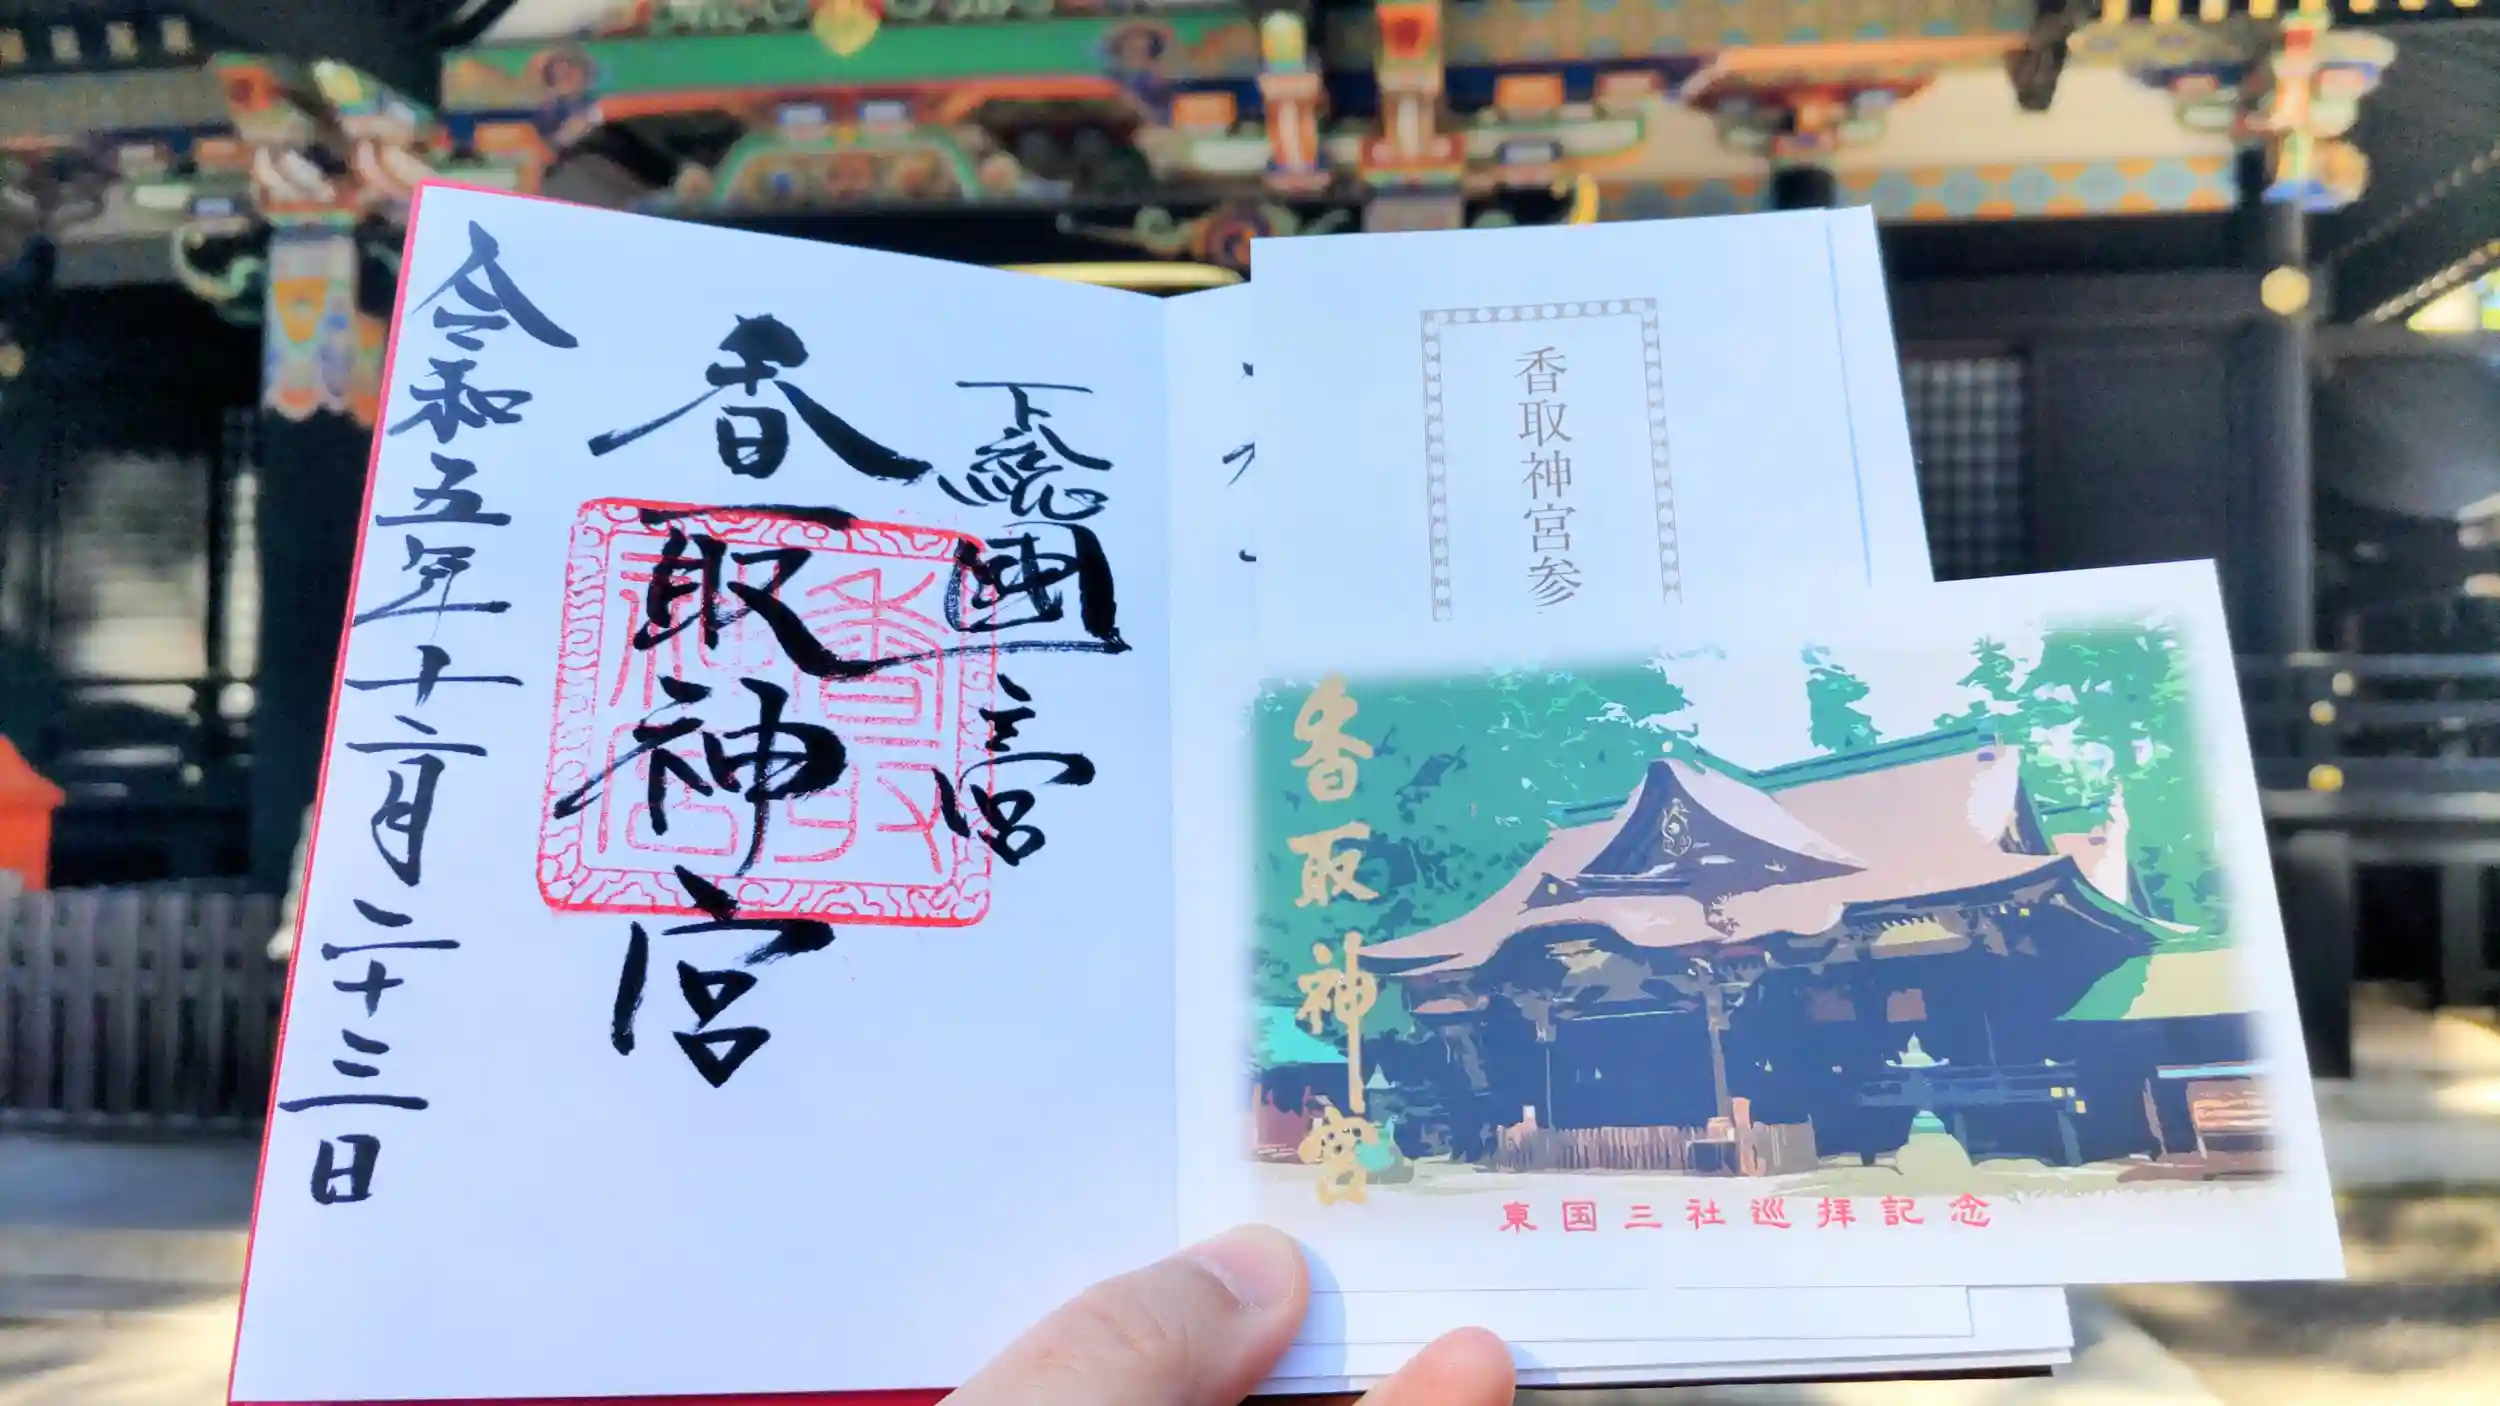 下総國一之宮
香取神宮
令和五年十二月二十三日
香取神宮
香取神宮参
香取神宮
東国三社巡拝記念